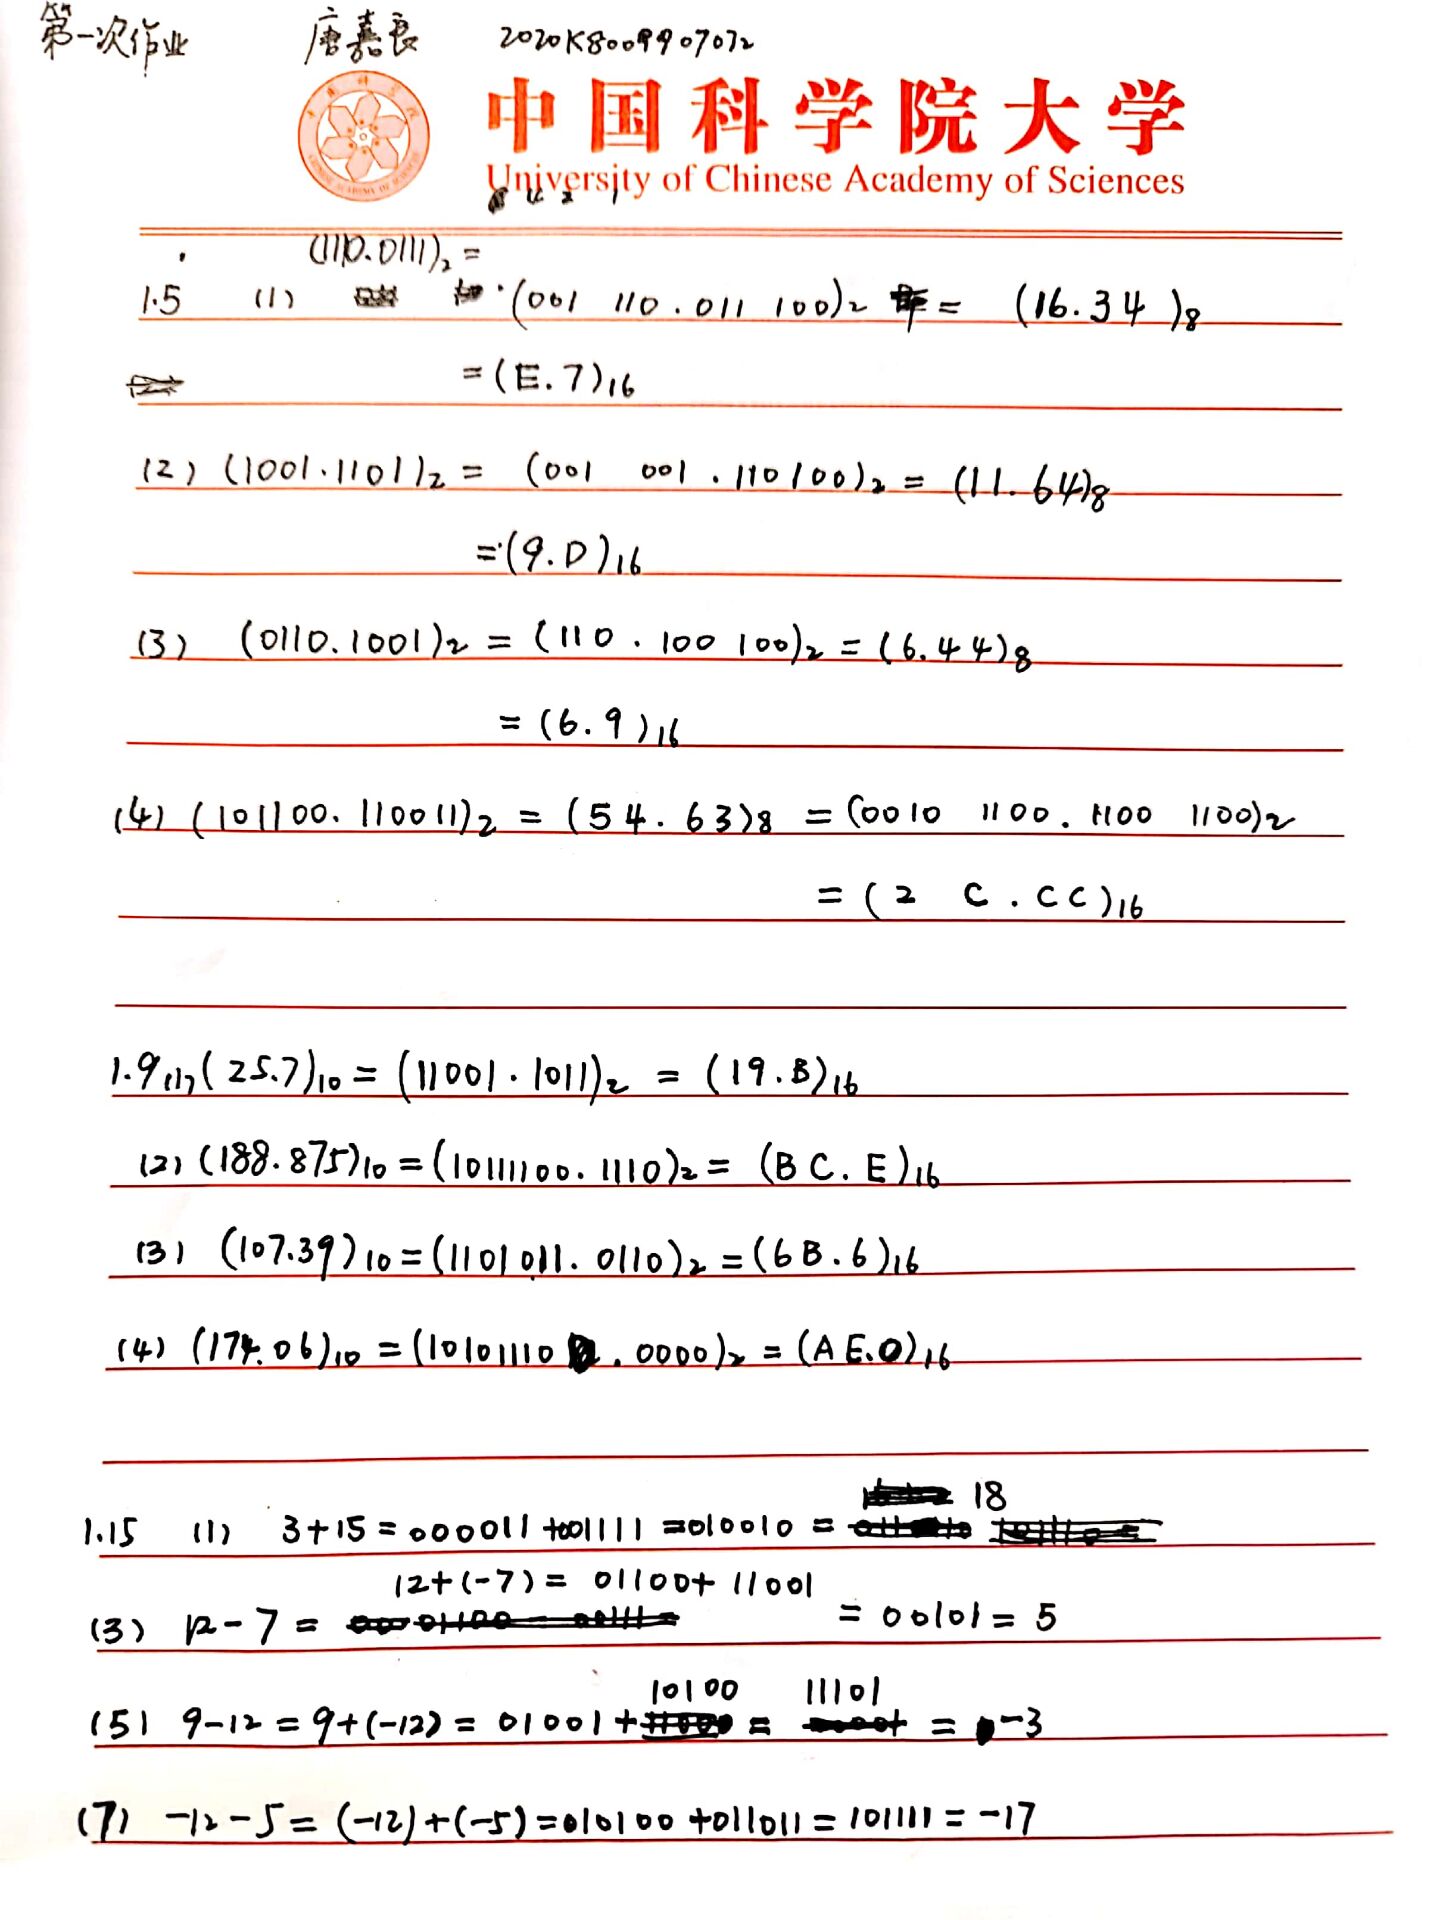 第一次作业 唐嘉良 2020K8009907072
中国科学院大学
University of Chinese Academy of Sciences
(1110.0111)₂ =
1.5 (1) (001 110.011 100)₂ = (16.34)₈
= (E.7)₁₆
(2) (1001.1101)₂ = (001 001.110100)₂ = (11.64)₈
= (9.D)₁₆
(3) (0110.1001)₂ = (110.100 100)₂ = (6.44)₈
= (6.9)₁₆
(4) (101100.110011)₂ = (54.63)₈ = (0010 1100.1100 1100)₂
= (2 C.CC)₁₆
1.9 (1) (25.7)₁₀ = (11001.1011)₂ = (19.B)₁₆
(2) (188.875)₁₀ = (10111100.1110)₂ = (BC.E)₁₆
(3) (107.39)₁₀ = (1101011.0110)₂ = (6B.6)₁₆
(4) (174.06)₁₀ = (10101110.0000)₂ = (AE.0)₁₆
1.15 (1) 3+15 = 000011 + 001111 = 010010 = 18
12+(-7) = 01100+ 11001
(3) 12-7 = = 00101 = 5
(5) 9-12 = 9+(-12) = 01001 + 10100 = 11101 = -3
(7) -12-5 = (-12)+(-5) = 010100 + 011011 = 101111 = -17